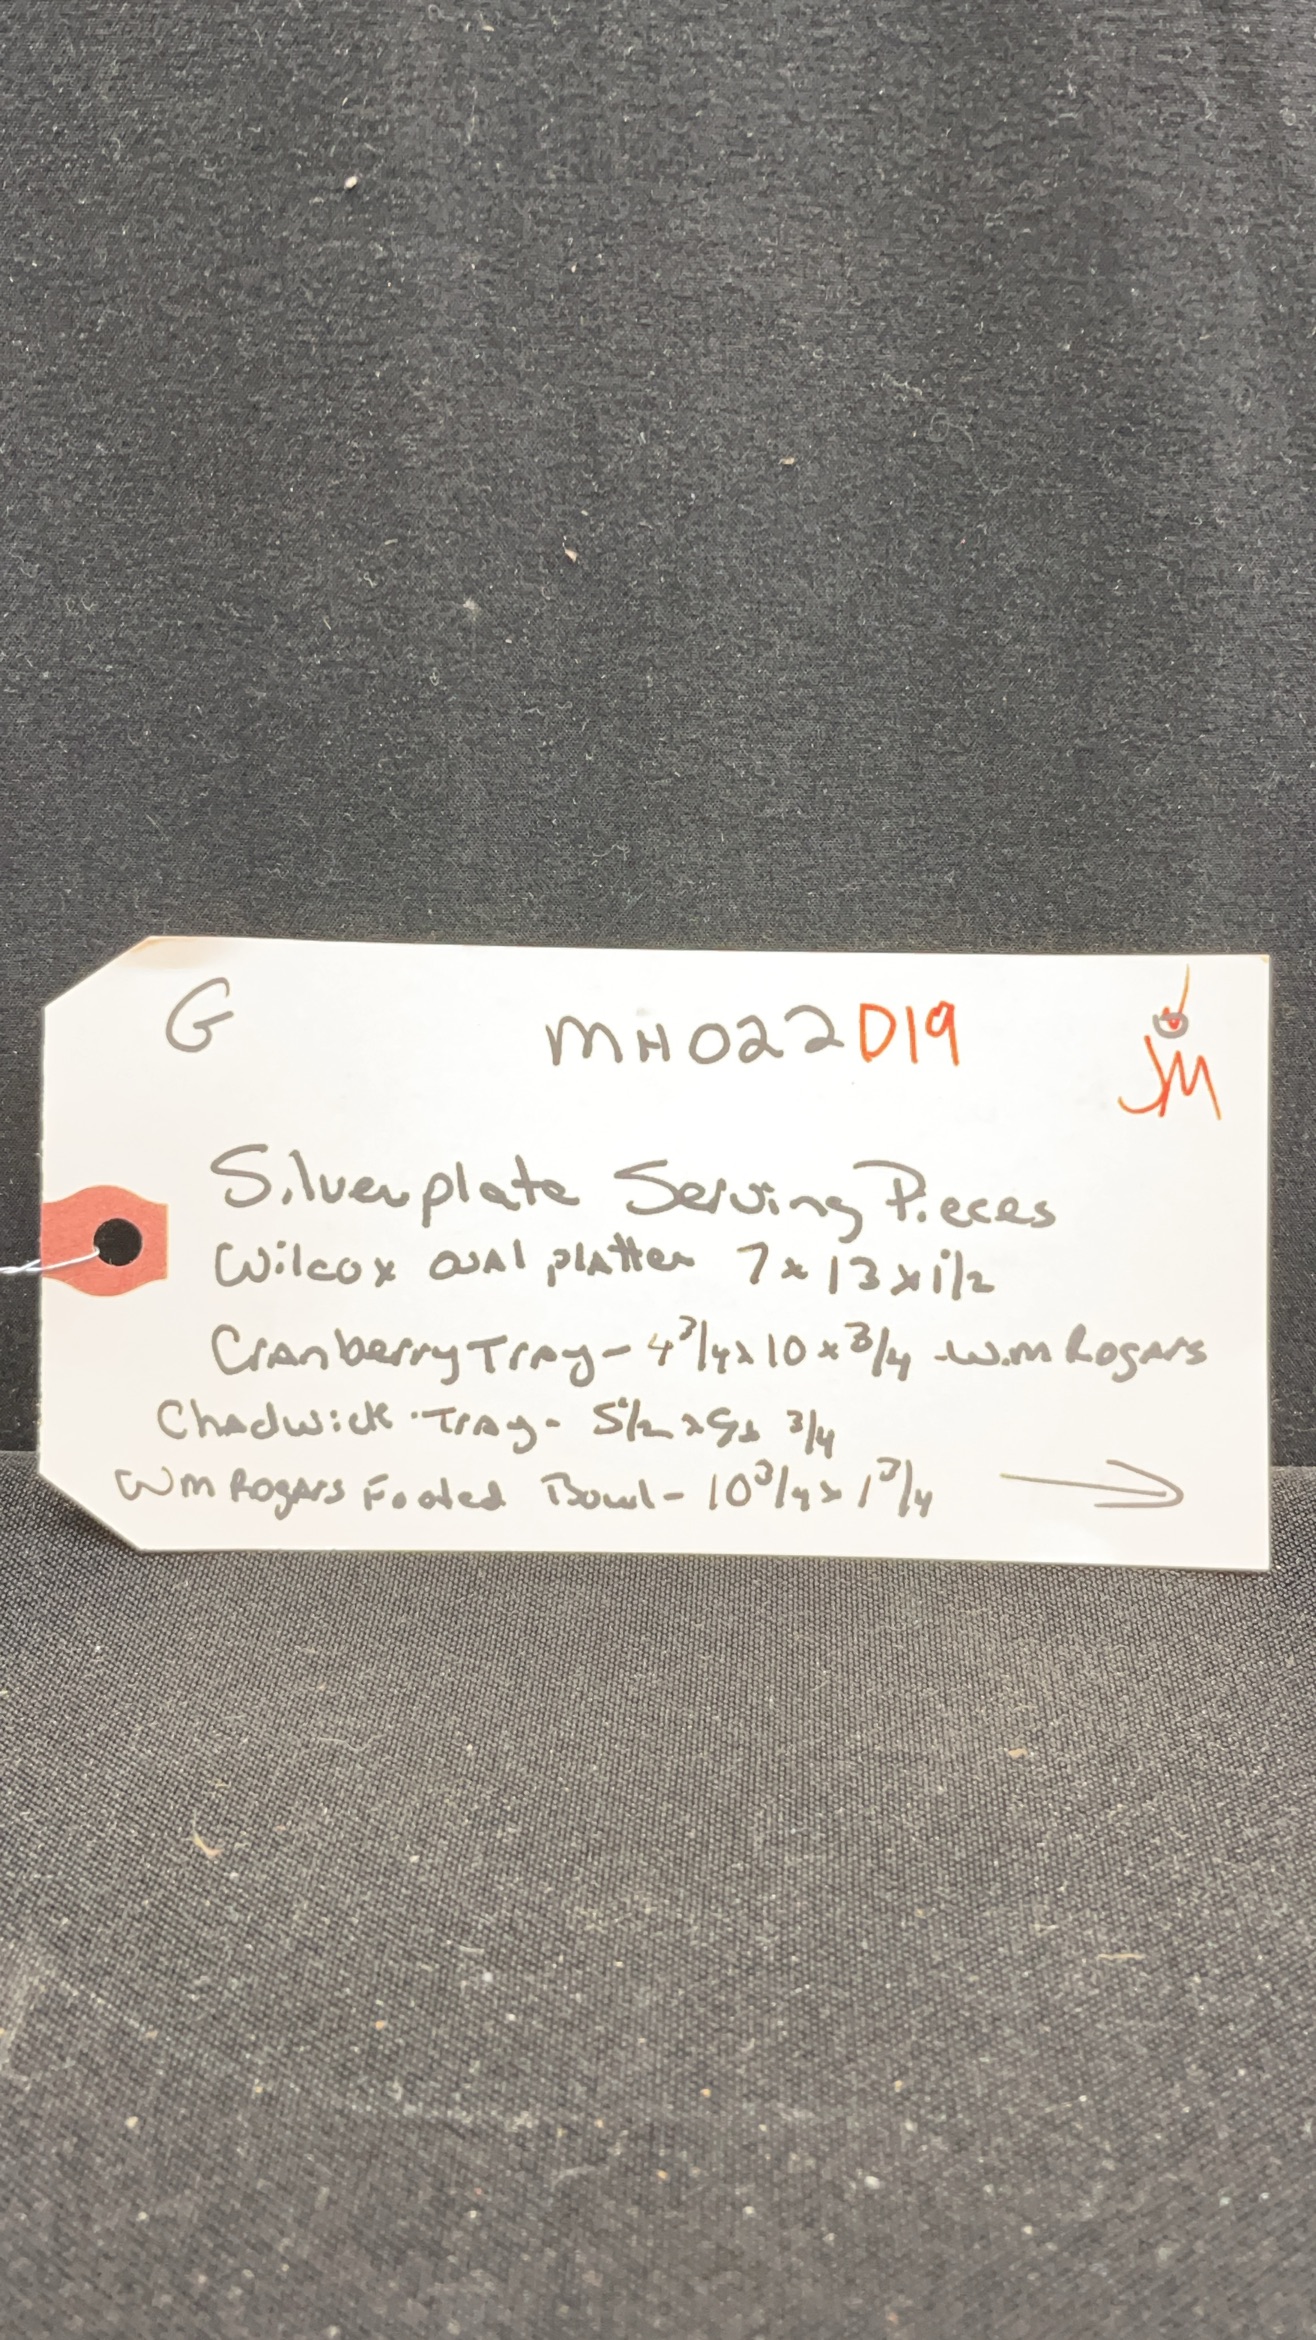 G MH022D19
JM
Silverplate Serving Pieces
Wilcox oval platter 7 x 13 x 1 1/2
Cranberry Tray - 4 3/4 x 10 x 3/4 - W.m Rogars
Chadwick Tray - 5 1/2 x 9 x 3/4
Wm Rogars Footed Bowl - 10 3/4 x 1 3/4 →